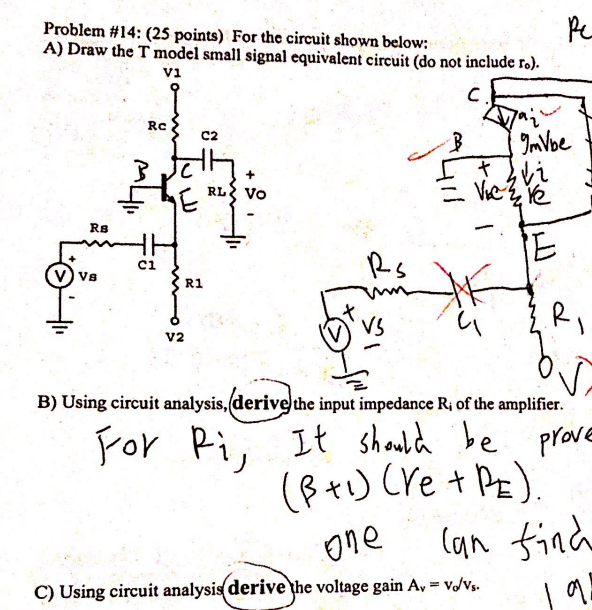 Problem #14: (25 points) For the circuit shown below:
A) Draw the T model small signal equivalent circuit (do not include rₒ).
V1
Rc
C2
B
C
E
RL
+
Vo
-
Rs
C1
+
V
Vs
-
R1
V2
C
αi
gmVbe
B
+
i
Vbe
re
-
E
Rs
C1
+
V
VS
-
R1
V
B) Using circuit analysis, derive the input impedance Rᵢ of the amplifier.
For Ri, It should be prove
(β+1) (re + RE).
one can find
C) Using circuit analysis derive the voltage gain Aᵥ = vₒ/vₛ.